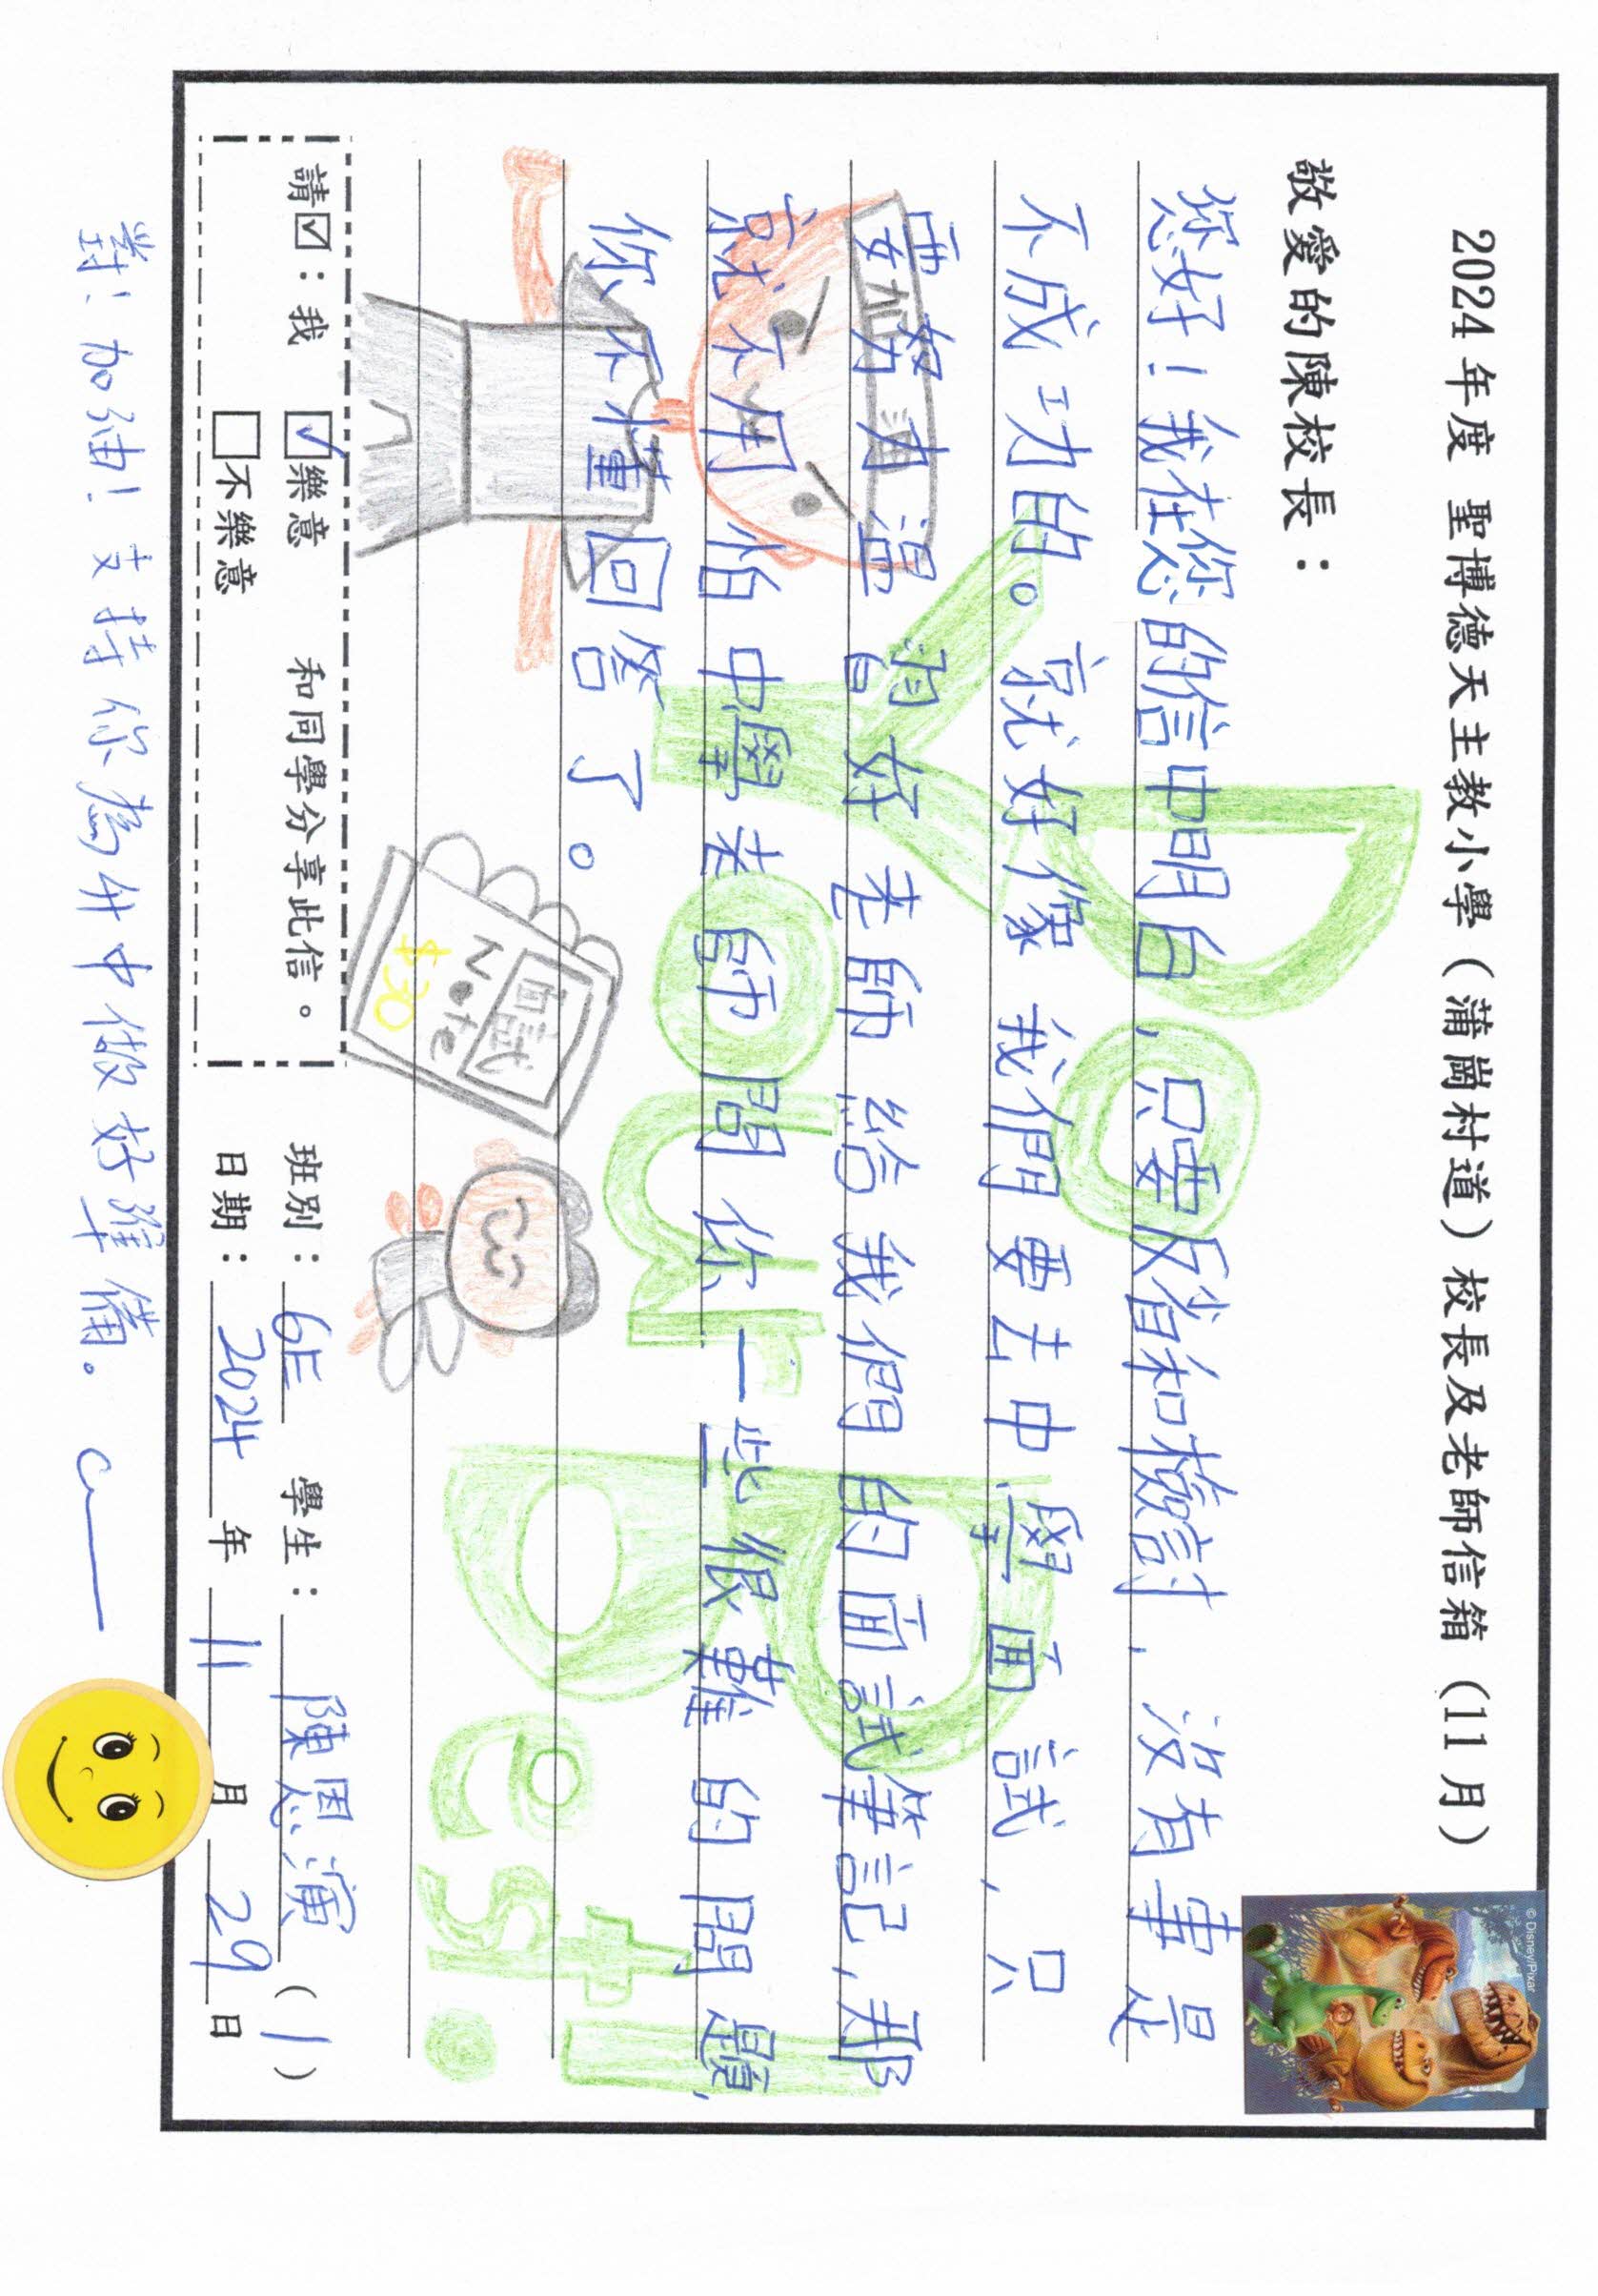 2024年度 聖博德天主教小學（蒲崗村道）校長及老師信箱（11月）
© Disney/Pixar
敬愛的陳校長：
您好！我在您的信中明白，只要反省和檢討，沒有事是
不成功的。就好像我們要去中學面試，只
要努力溫習好老師給我們的面試筆記，那
就不用怕中學老師問你一些很難的問題，
你不懂回答了。
加油
Do Your Best!
面試
Note
$30
請☑：我 ☑樂意 和同學分享此信。
□不樂意
班別：6E 學生：陳恩演（1）
日期：2024年11月29日
對！加油！支持你為升中做好準備。